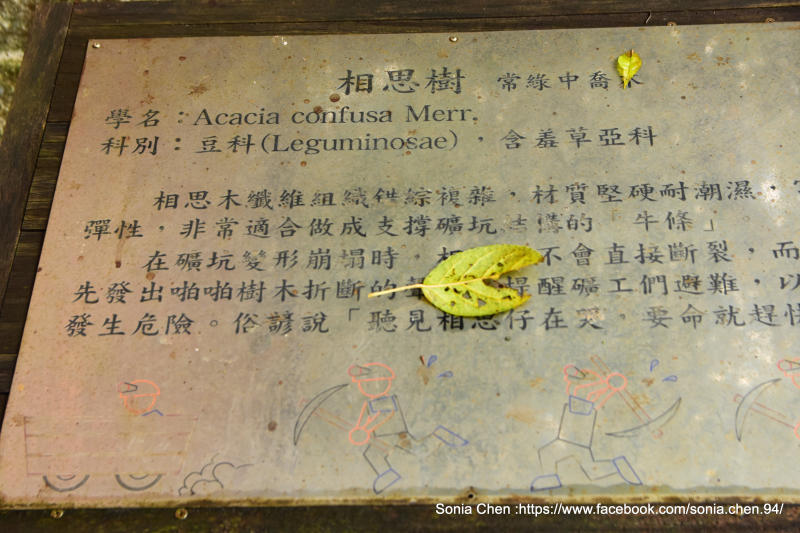 相思樹 常綠中喬木
學名：Acacia confusa Merr.
科別：豆科(Leguminosae)，含羞草亞科
相思木纖維組織錯綜複雜，材質堅硬耐潮濕，
彈性，非常適合做成支撐礦坑結構的「牛條」。
在礦坑變形崩塌時，相 不會直接斷裂，而
先發出啪啪樹木折斷的聲 提醒礦工們避難，以
發生危險。俗諺說「聽見相思仔在哭，要命就趕快
Sonia Chen :https://www.facebook.com/sonia.chen.94/